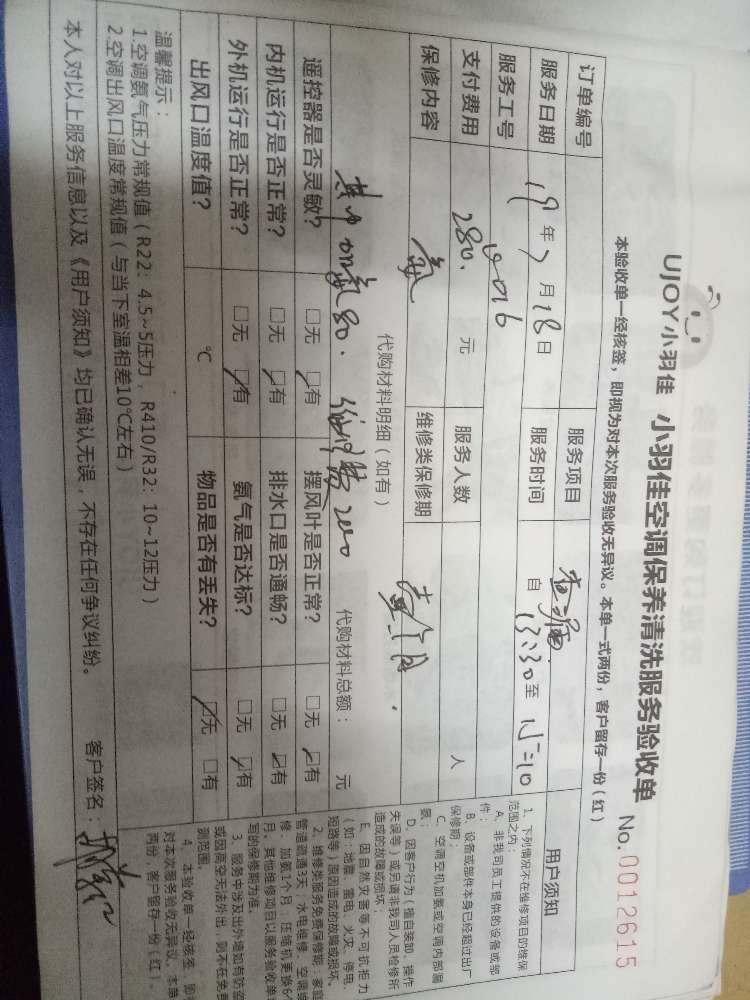 UJOY小羽佳 小羽佳空调保养清洗服务验收单 No.0012615
本验收单一经核签，即视为对本次服务验收无异议。本单一式两份，客户留存一份（红）
订单编号 服务项目
服务日期 19年7月18日 服务时间 自13:30至
服务工号 0016
支付费用 280. 元 服务人数 人
保修内容 氟 维修类保修期 壹个月.
代购材料明细（如有） 代购材料总额： 元
其中加氟80. 维修费200
遥控器是否灵敏？ □无 ☑有 摆风叶是否正常？ □无 ☑有
内机运行是否正常？ □无 □有 排水口是否通畅？ □无 ☑有
外机运行是否正常？ □无 ☑有 氨气是否达标？ □无 ☑有
出风口温度值？ ℃ 物品是否有丢失？ ☑无 □有
温馨提示：
1.空调氨气压力常规值（R22：4.5~5压力，R410/R32：10~12压力）
2.空调出风口温度常规值（与当下室温相差10℃左右）
本人对以上服务信息以及《用户须知》均已确认无误，不存在任何争议纠纷。 客户签名：
用户须知
1、下列情况不在维修项目的维保
范围之内：
A、非我司员工提供的设备或部
件；
B、设备或部件本身已经超过出厂
保修期；
C、空调空机加氨或空调内部漏
氨；
D、因客户行为（擅自装卸、操作
失误等）或另请非我司人员检修所
造成的故障或损坏
E、因自然灾害等不可抗拒力
（如：地震、雷电、火灾、停电、
短路等）原因造成的故障或损坏。
2、维修类服务免费保修期：家庭
管道疏通3天，水电维修、空调维
修、加氨1个月；压缩机更换6个
月，其他维修项目以服务验收单
写的保修期为准。
3、服务中涉及出外墙如有防盗
或因高空无法外出，则不在免费
测范围
4、本验收单一经核签，即
对本次服务验收无异议。本单
两份，客户留存一份（红）。